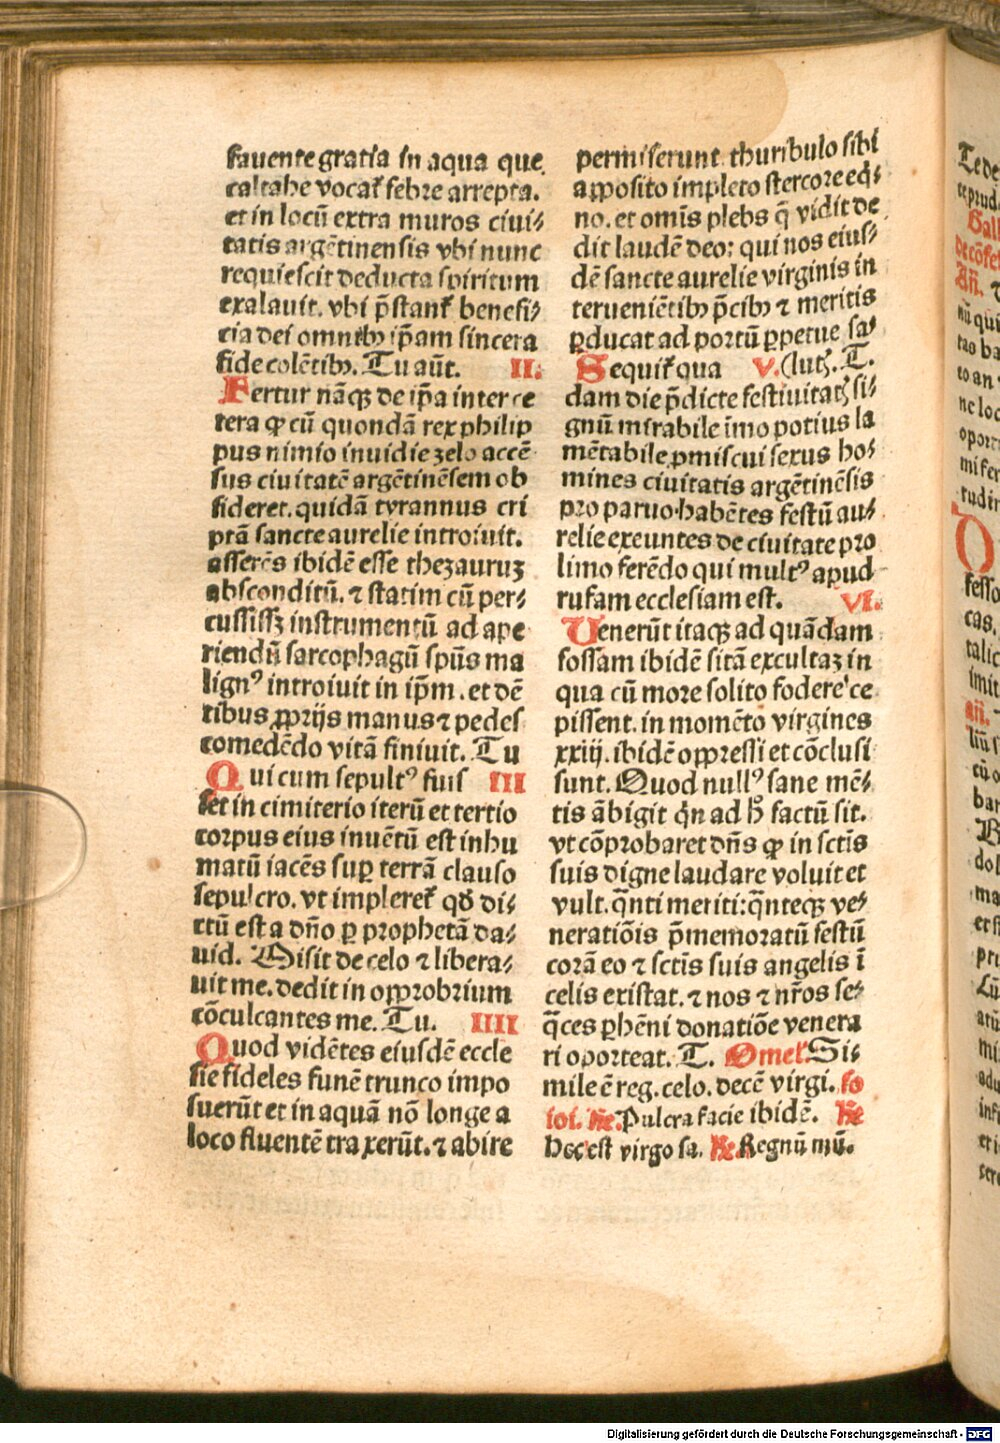 fauente gratia in aqua que
caltahe vocat᷑ febre arrepta.
et in locū extra muros ciui⸗
tatis argētinensis vbi nunc
requiescit deducta spiritum
exalauit. vbi p̄stant᷑ benefi⸗
cia dei omnibꝫ ip̄am sincera
fide colētibꝫ. Tu aūt. II.
Fertur nāqꝫ de ip̄a inter ce
tera ꝙ cū quondā rex philip
pus nimio inuidie zelo accē
sus ciuitatē argētinēsem ob
sideret. quidā tyrannus cri
ptā sancte aurelie introiuit.
asserēs ibidē esse thezauruꝫ
absconditū. ⁊ statim cū per⸗
cussissꝫ instrumentū ad ape
riendū sarcophagū spūs ma
lignꝰ introiuit in ip̄m. et dē
tibus ꝓprijs manus ⁊ pedes
comedēdo vitā finiuit. Tu
Qui cum sepultꝰ fuis III
set in cimiterio iterū et tertio
corpus eius inuētū est inhu
matū iacēs suꝑ terrā clauso
sepulcro. vt impleret᷑ qđ di⸗
ctū est a dño ꝑ prophetā da⸗
uid. Misit de celo ⁊ libera⸗
uit me. dedit in opprobrium
cōculcantes me. Tu. IIII
Quod vidētes eiusdē eccle
sie fideles funē trunco impo
suerūt et in aquā nō longe a
loco fluentē traxerūt. ⁊ abire
permiserunt. thuribulo sibi
apposito impleto stercore eq̇⸗
no. et omīs plebs q̄ vidit de
dit laudē deo: qui nos eius⸗
dē sancte aurelie virginis in
terueniētibꝫ p̄cibꝫ ⁊ meritis
ꝑducat ad portū ꝑpetue sa⸗
Sequit᷑ qua V. (lutꝭ. T.
dam die p̄dicte festiuitatꝭ si⸗
gnū mirabile īmo potius la
mētabile ꝓmiscui sexus ho⸗
mines ciuitatis argētinēsis
pro paruo habētes festū au⸗
relie exeuntes de ciuitate pro
limo ferēdo qui multꝰ apud
rufam ecclesiam est. VI.
Uenerūt itaqꝫ ad quādam
fossam ibidē sitā excultaꝫ in
qua cū more solito fodere ce
pissent. in momēto virgines
xxiij. ibidē oppressi et cōclusi
sunt. Quod nullꝰ sane mē⸗
tis ābigit q̇n ad h̄ factū sit.
vt cōprobaret dñs ꝙ in sctīs
suis digne laudare voluit et
vult. q̄nti meriti: q̄nteqꝫ ve⸗
neratiōis p̄memoratū festū
corā eo ⁊ sctīs suis angelis ī
celis existat. ⁊ nos ⁊ nr̄os se⸗
q̄ces ꝑhēni donatiōe venera
ri oporteat. T. Omel᷑. Si⸗
mile ē reg. celo. decē virgi. fo
ioi. ℟e. Pulcra facie ibidē. ℟e
Hec est virgo sa. ℟e. Regnū mū.
Digitalisierung gefördert durch die Deutsche Forschungsgemeinschaft - DFG